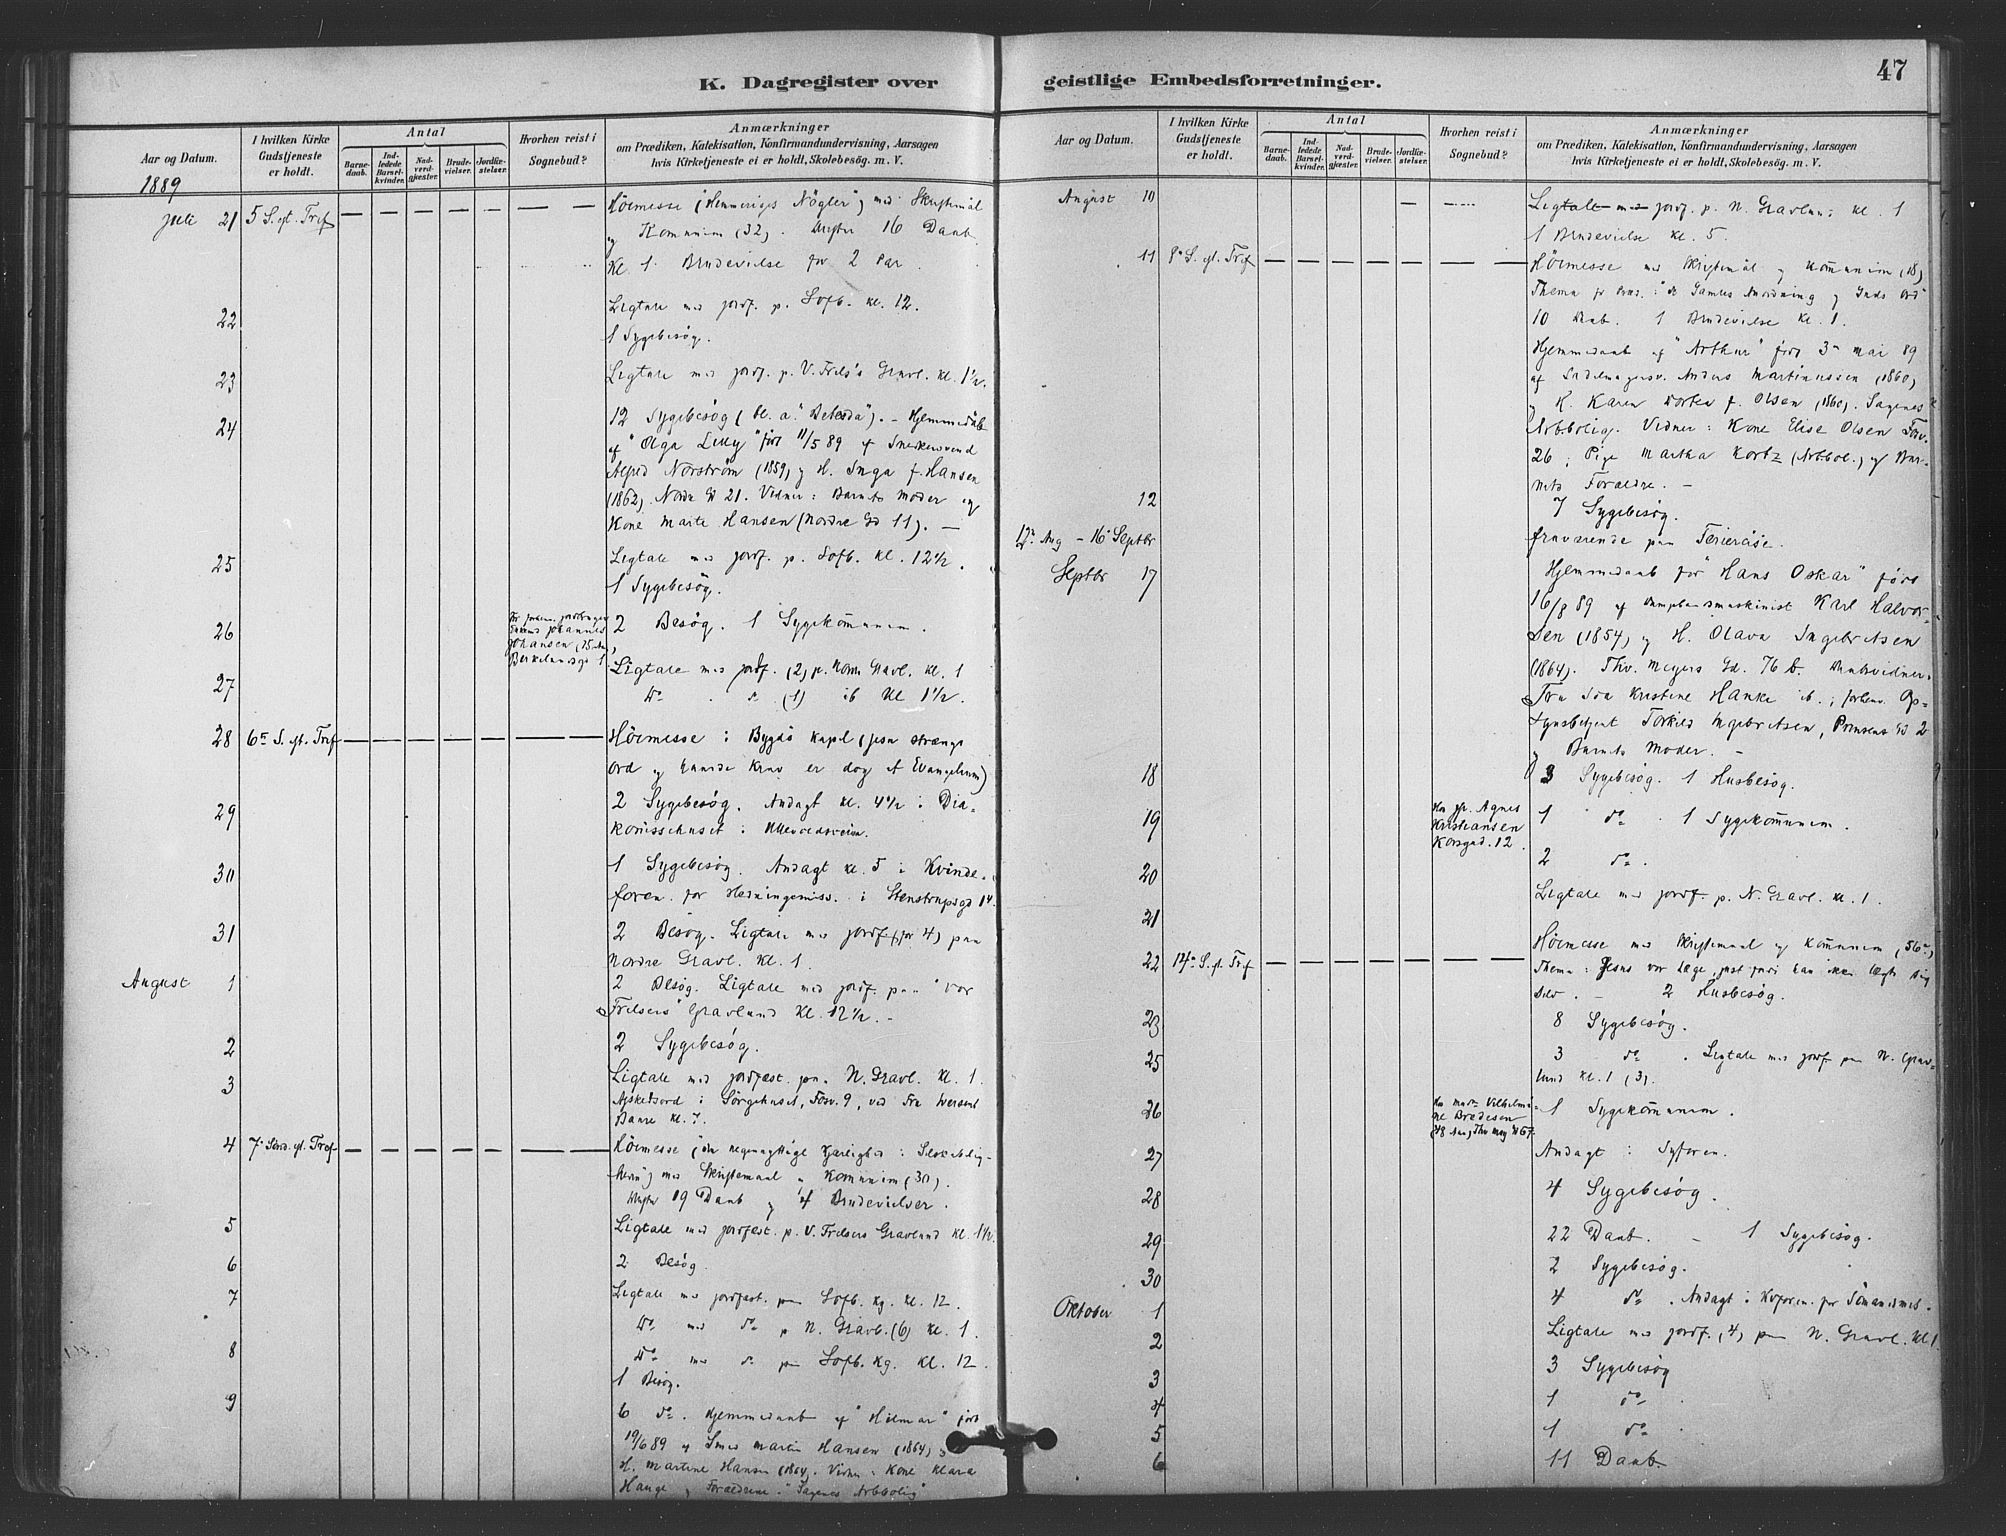 K. Dagregister over
Aar og Datum.
I hvilken Kirke Gudstjeneste er holdt.
Antal
Barnedaab.
Indledede Barselkvinder.
Nadverdgjæster.
Brudevielser.
Jordfæstelser.
Hvorhen reist i Sognebud?
Anmærkninger
om Prædiken, Katekisation, Konfirmandundervisning, Aarsagen
hvis Kirketjeneste ei er holdt, Skolebesøg. m. V.
1889
Juli 21 5 S. eft. Tref
Höimesse (Himmeriges Nögler) med Skriftemål
og Komunion (32). 16 Daab
Kl. 1. Brudevielse for 2 Par.
22
Ligtale med jordf. p. Sofb. kl. 12.
1 Sygebesög.
23
Ligtale med jordf. p. V. Frels's Gravl. kl. 1½.
24
12 Sygebesög (bl. a. "Betesda"). – Hjemmedåb
af "Olga Lilly" född 11/5 89 af Snedkersvend
Alfred Norström (1859) og H. Inga f. Hansen
(1862). Nordre Gd 21. Vidner: Barnets Moder og
Kone Marte Hansen (Nordre Gd 11). –
25
Ligtale med jordf. p. Sofb. kl. 12½.
1 Sygebesög.
26
Johannes
Johansen
2 Besög. 1 Sygekomunion.
27
Ligtale med jordf. (2) p. Nordre Gravl. kl. 1
Do do (1) ib kl 1½.
28 6te S. eft. Tref
Höimesse i Bygdö Kapel (Jesu strænge
Ord og Krav er dog et Evangelium)
29
2 Sygebesög. Andagt kl. 4½ i Dia-
konissehuset i Ullevoldsveien.
30
1 Sygebesög. Andagt kl. 5 i Kvinde-
foren. for Hedningemiss. i Stenstrupsgd 14.
31
2 Besög. Ligtale med jordf. (for 4) paa
Nordre Gravl. kl. 1.
August 1
2 Besög. Ligtale med jordf. paa "Vor
Frelsers" Gravlund kl. 12½. –
2
2 Sygebesög.
3
Ligtale med jordfæst. paa N. Gravl. kl. 1.
Afskedsord i Sörgehuset, Fosv. 9, ved Fru Iversens
Baare kl. 7.
4 7de Sönd. eft. Tref
Höimesse (den uegennyttige Kjærlighed i
) med Skriftemaal og Komunion (30).
19 Daab og 4 Brudevielser.
5
Ligtale med jordfæst. p. V. Frelsers Gravlund kl. 1½.
6
2 Besög.
7
Ligtale med jordfæst. paa Sofb. Kg. kl. 12.
Do med do p N. Gravl. (6) kl. 1.
8
Do med do paa Sofb. Kg. kl. 12.
1 Besög.
9
6 do. Hjemmedaab af "Hilmar" född
19/6 89 af Smed Martin Hansen (1864) og
H. Martine Hansen (1864). Vidner: Kone Klara
Hauge og Forældrene. "Sagenes Arbbolig"
geistlige Embedsforretninger.
47
Aar og Datum.
I hvilken Kirke Gudstjeneste er holdt.
Antal
Barnedaab.
Indledede Barselkvinder.
Nadverdgjæster.
Brudevielser.
Jordfæstelser.
Hvorhen reist i Sognebud?
Anmærkninger
om Prædiken, Katekisation, Konfirmandundervisning, Aarsagen
hvis Kirketjeneste ei er holdt, Skolebesøg. m. V.
August 10
Ligtale med jordf. p. N. Gravlun: kl. 1
1 Brudevielse kl. 5.
11 8de S. eft. Tref
Höimesse med Skriftemål og Komunion (18)
Thema for Præd.: de Gamles Anordning og Guds Ord
10 Daab. 1 Brudevielse kl. 1.
Hjemmedaab af "Arthur" född 3de Mai 89
af Sadelmagersv. Anders Martinussen (1860)
og H. Karen Dortea f. Olsen (1860). Sagenes
Arbbolig. Vidner: Kone Elise Olsen Fosv.
26; Pige Martha Kortz (Arbbol.) og Bar-
nets Forældre. –
12
7 Sygebesög.
12te Aug – 16 Septbr
fraværende paa Feriereise.
Septbr 17
Hjemmedaab for "Hans Oskar" född
16/8 89 af Dampbaadsmaskinist Karl Halvor-
sen (1854) og H. Olava Ingebretsen
(1864). Thv. Meyers Gd. 76 b. Daabsvidner:
Fru Kristine Hanke ib.; forhenv. Op-
synsbetjent Torkild Ingebretsen, Prinsens Gd 2
og Barnets Moder. –
18
3 Sygebesög. 1 Husbesög.
19
Hos Agnes
Kristiansen
Korsgad. 12.
1 do. 1 Sygekomunion.
20
2 do.
21
Ligtale med jordf. p. N. Gravl. kl. 1.
22 14de S. eft. Tref
Höimesse med Skriftemaal og Komunion (56)
Thema: Jesus vor Læge, just fordi han ikke læger sig
selv. – 2 Husbesög.
23
8 Sygebesög.
25
3 do. Ligtale med jordf. paa N. Grav-
lund kl. 1 (3).
26
Vilhelmi-
ne Bredesen
(48 Aar) Thv. Mey Gd 67.
1 Sygekomunion.
27
Andagt i Syforen.
28
4 Sygebesög.
29
22 Daab. – 1 Sygebesög.
30
2 Sygebesög.
Oktober 1
4 do. Andagt i Kvforen. for Sömandsmis.
2
Ligtale med jordf. (4) paa N. Gravl. kl 1.
3
3 Sygebesög
4
1 do.
5
1 do.
6
11 Daab.